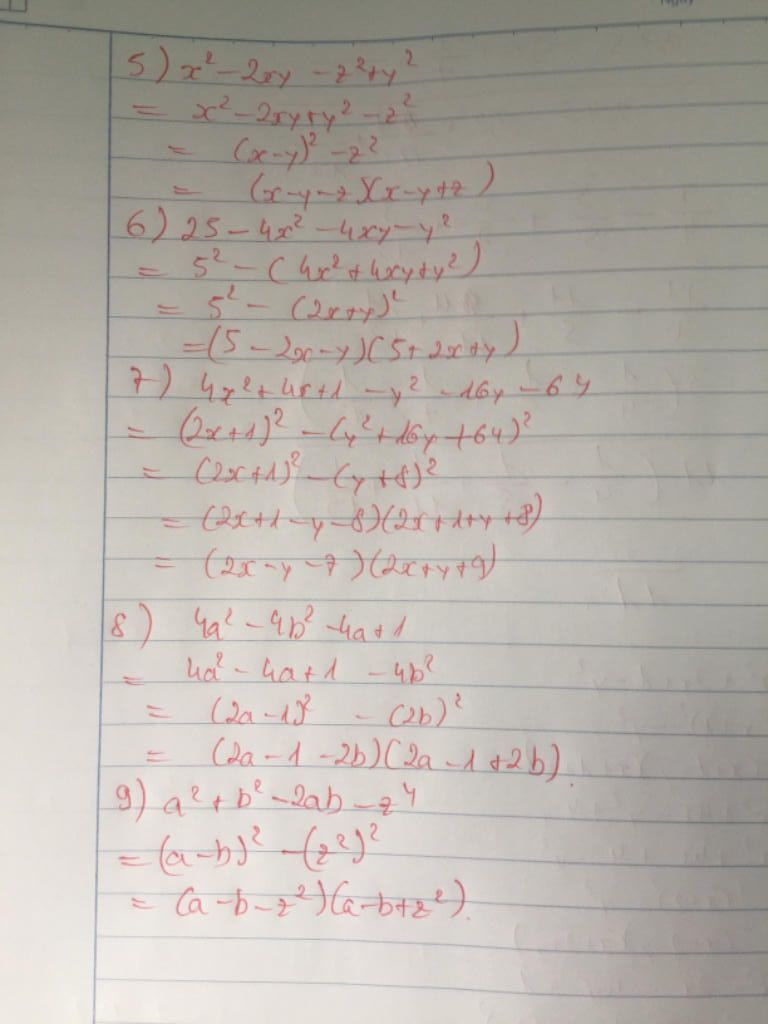 5) x² - 2xy - z² + y²
= x² - 2xy + y² - z²
= (x - y)² - z²
= (x - y - z)(x - y + z)
6) 25 - 4x² - 4xy - y²
= 5² - (4x² + 4xy + y²)
= 5² - (2x + y)²
= (5 - 2x - y)(5 + 2x + y)
7) 4x² + 4x + 1 - y² - 16y - 64
= (2x + 1)² - (y² + 16y + 64)²
= (2x + 1)² - (y + 8)²
= (2x + 1 - y - 8)(2x + 1 + y + 8)
= (2x - y - 7)(2x + y + 9)
8) 4a² - 4b² - 4a + 1
= 4a² - 4a + 1 - 4b²
= (2a - 1)² - (2b)²
= (2a - 1 - 2b)(2a - 1 + 2b).
9) a² + b² - 2ab - z⁴
= (a - b)² - (z²)²
= (a - b - z²)(a - b + z²).